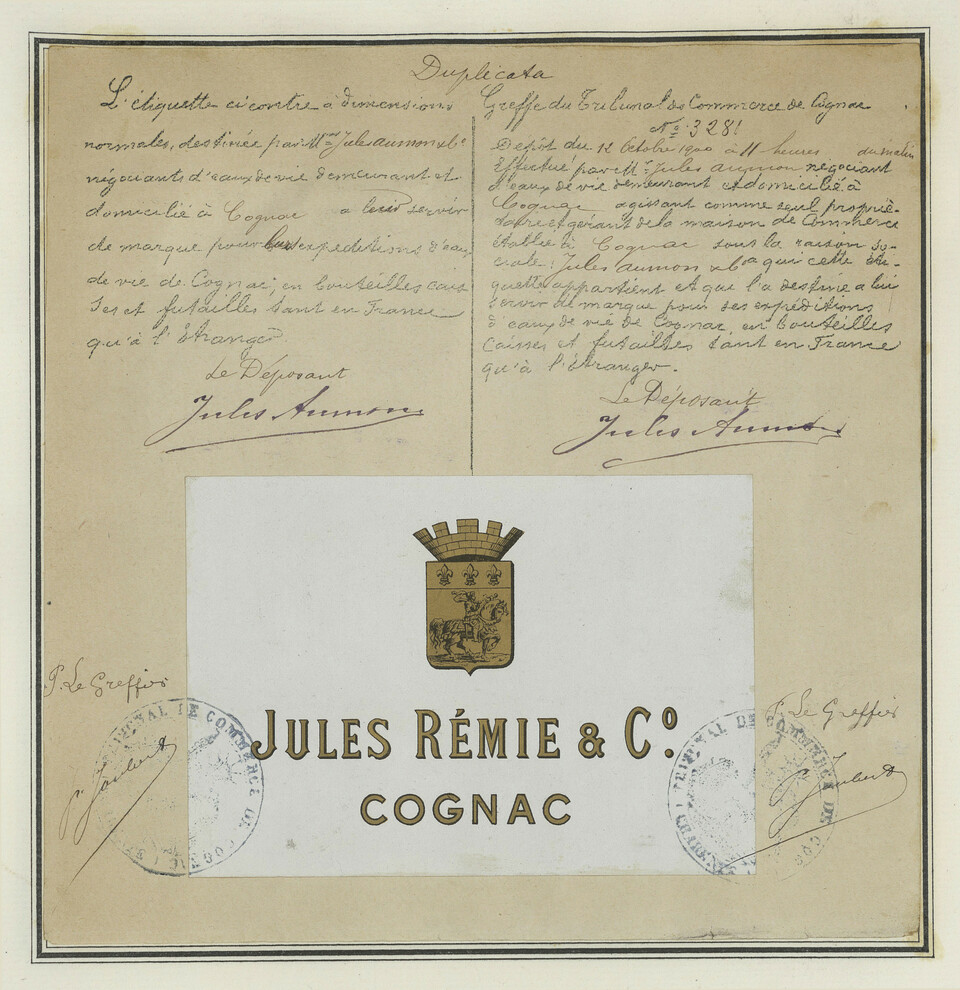 Duplicata
L'étiquette ci contre à dimensions
normales, destinée par Mr Jules Aumon & Co
négociants d'eaux de vie demeurant et
domicilié à Cognac a leur servir
de marque pour leurs expeditions d'eau
de vie de Cognac, en bouteilles cais
ses et futailles tant en France
qu'à l'étranger
Le Déposant
Jules Aumon
Greffe du Tribunal de Commerce de Cognac
No 3281
Dépôt du 12 Octobre 1900 à 11 heures du matin
Effectué par Mr Jules Aumon négociant
d'eaux de vie demeurant et domicilié à
Cognac agissant comme seul proprié-
taire et gérant de la maison de Commerce
établie à Cognac sous la raison so-
ciale: Jules Aumon & Co a qui cette éti-
quette appartient et que l'a destiné a lui
servir de marque pour ses expéditions
d'eaux de vie de Cognac, en bouteilles
caisses et futailles tant en France
qu'à l'étranger.
Le Déposant
Jules Aumon
JULES RÉMIE & Co.
COGNAC
P. Le Greffier
TRIBUNAL DE COMMERCE DE COGNAC
P. Le Greffier
TRIBUNAL DE COMMERCE DE COG